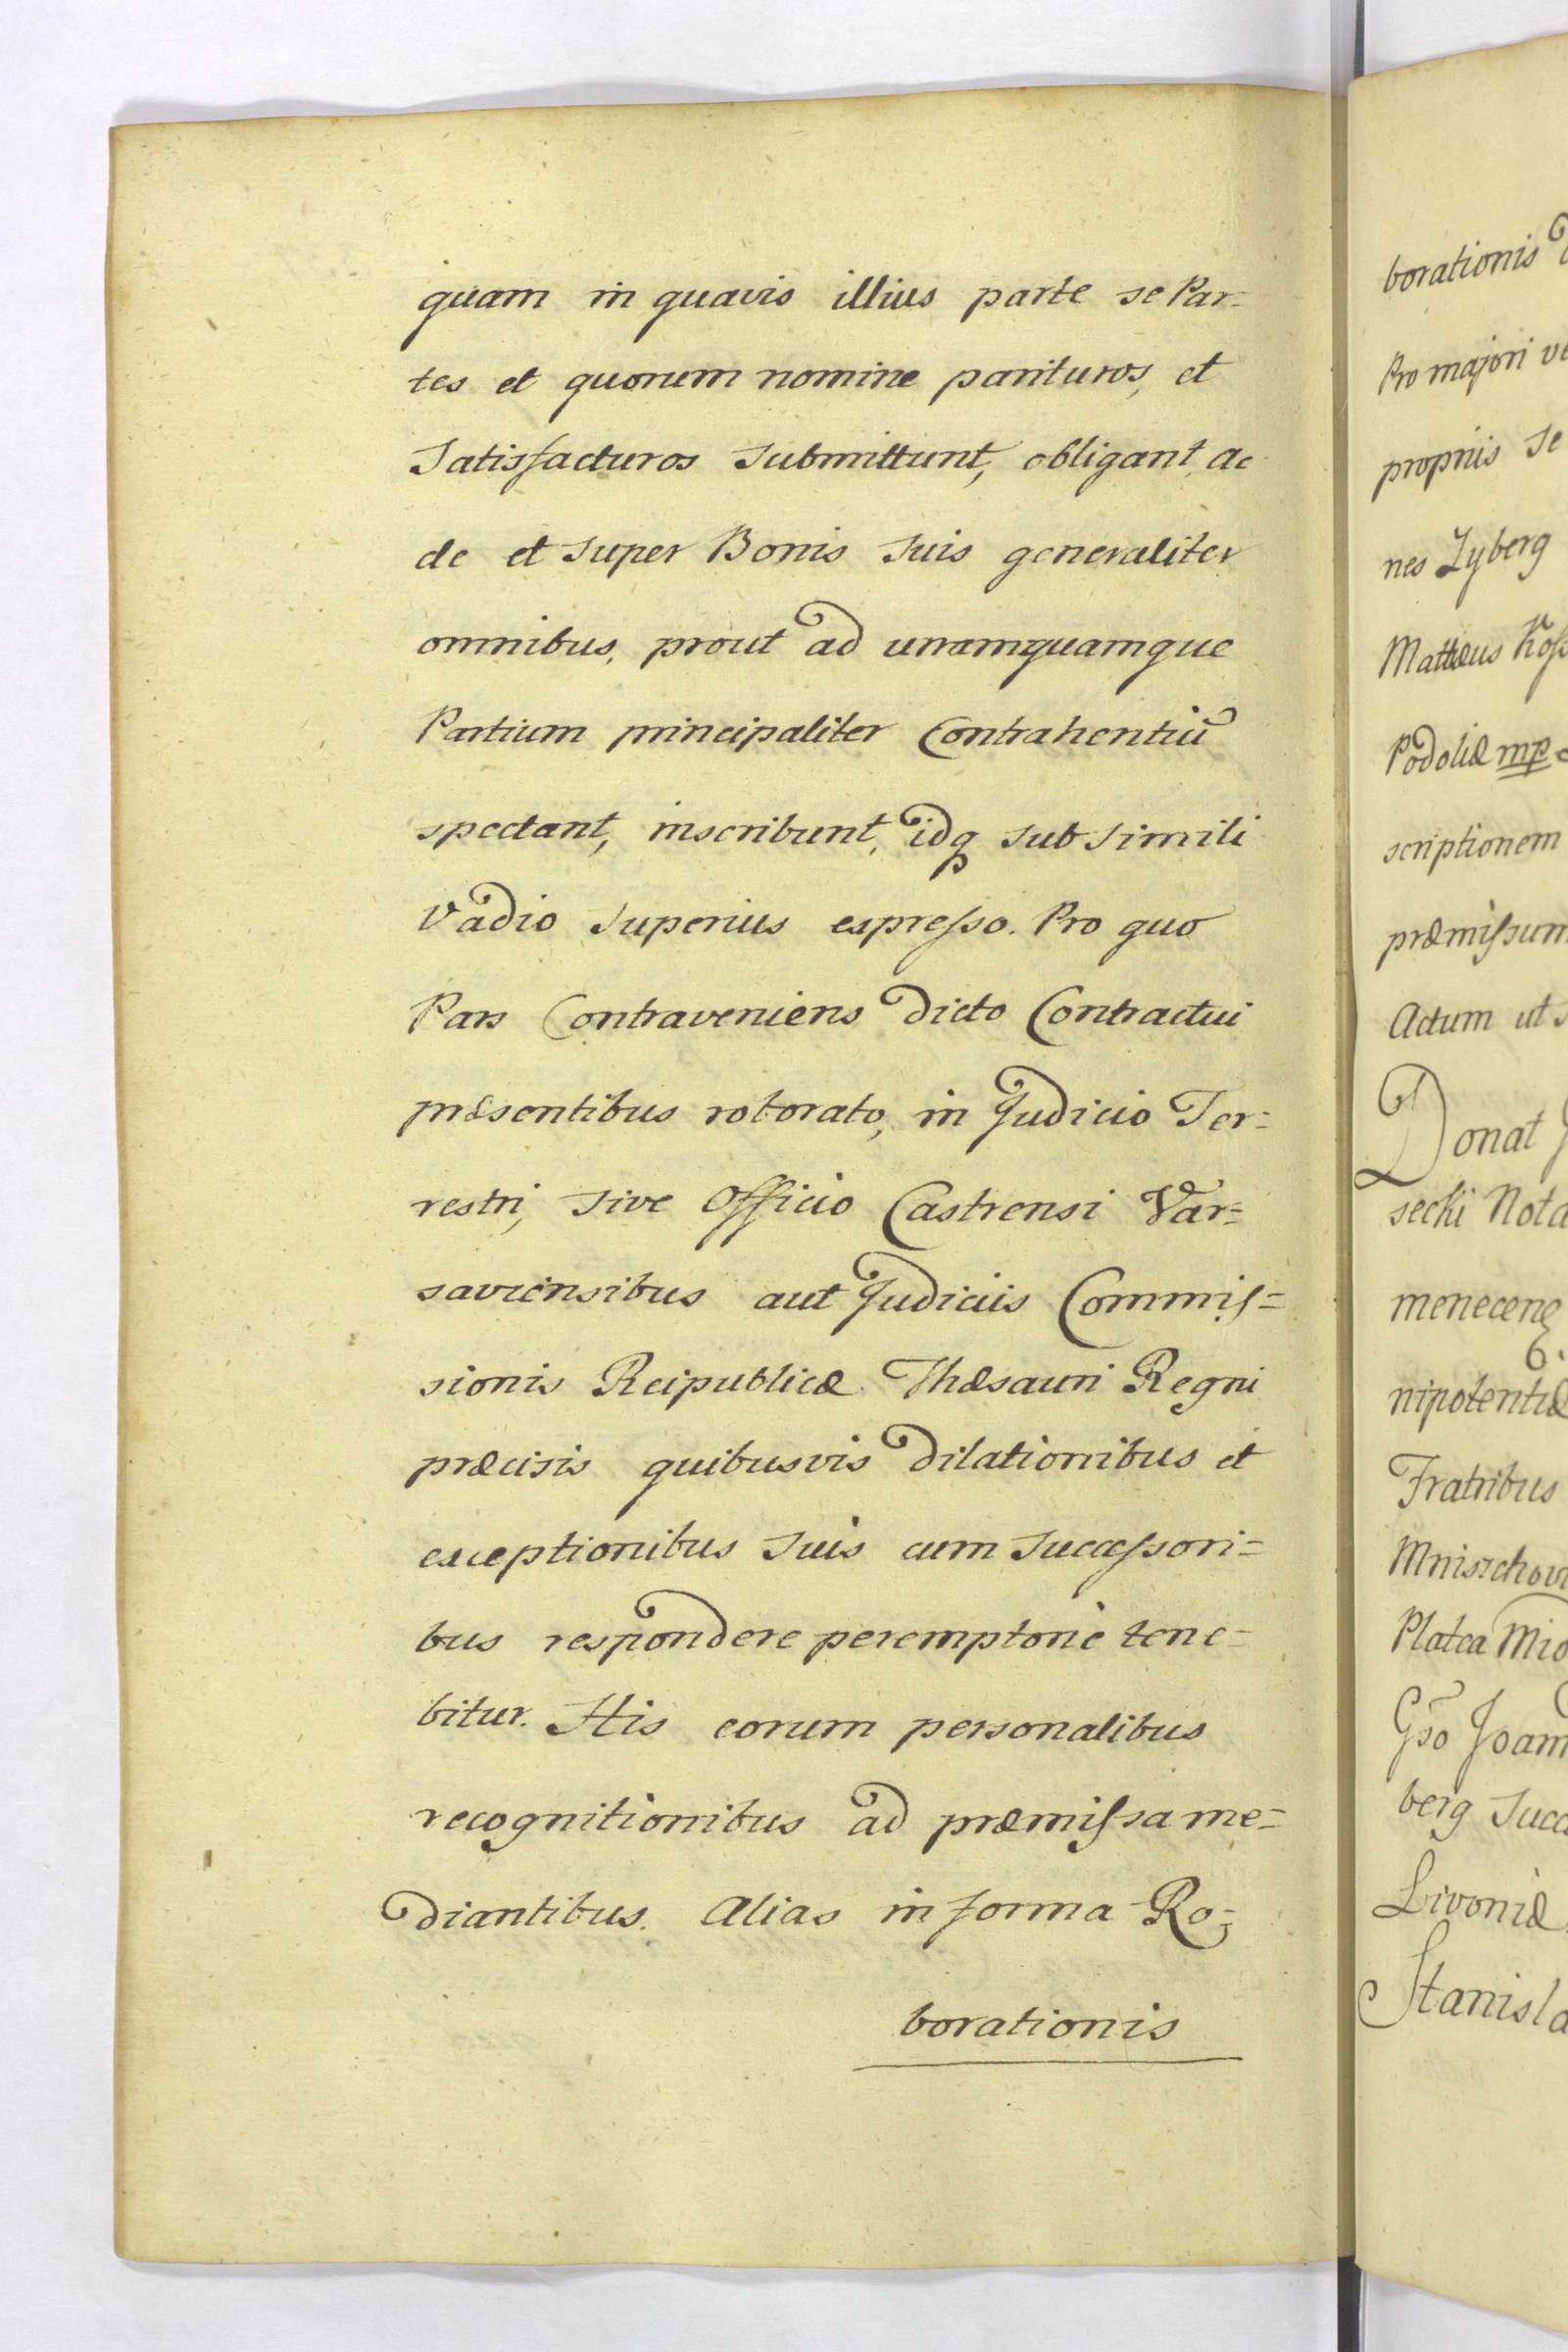 quam in quavis illius parte se Par=
tes et quorum nomine parituros, et
Satisfacturos submittunt, obligant, ac
de et super Bonis suis generaliter
omnibus, prout ad unamquamque
Partium principaliter Contrahentiũ
spectant, inscribunt, idq sub simili
Vadio superius expresso. Pro quo
Pars Contraveniens dicto Contractui
præsentibus roborato, in Judicio Ter=
restri, sive Officio Castrensi Var=
saviensibus aut Judiciis Commis=
sionis Reipublicæ Thæsauri Regni
præcisis quibusvis dilationibus et
exceptionibus suis cum successori=
bus respondere peremptorie tene=
bitur. His eorum personalibus
recognitionibus ad præmissa me=
diantibus. Alias in forma Ro=
borationis
borationis
Pro majori
propriis se
nes Zyberg
Mattheus
Podoliæ mp
scriptionem
præmissum
Actum ut
Donat
secki
menecen
6.
nipotentiæ
Fratribus
Platea
Gso
berg
Livoniæ